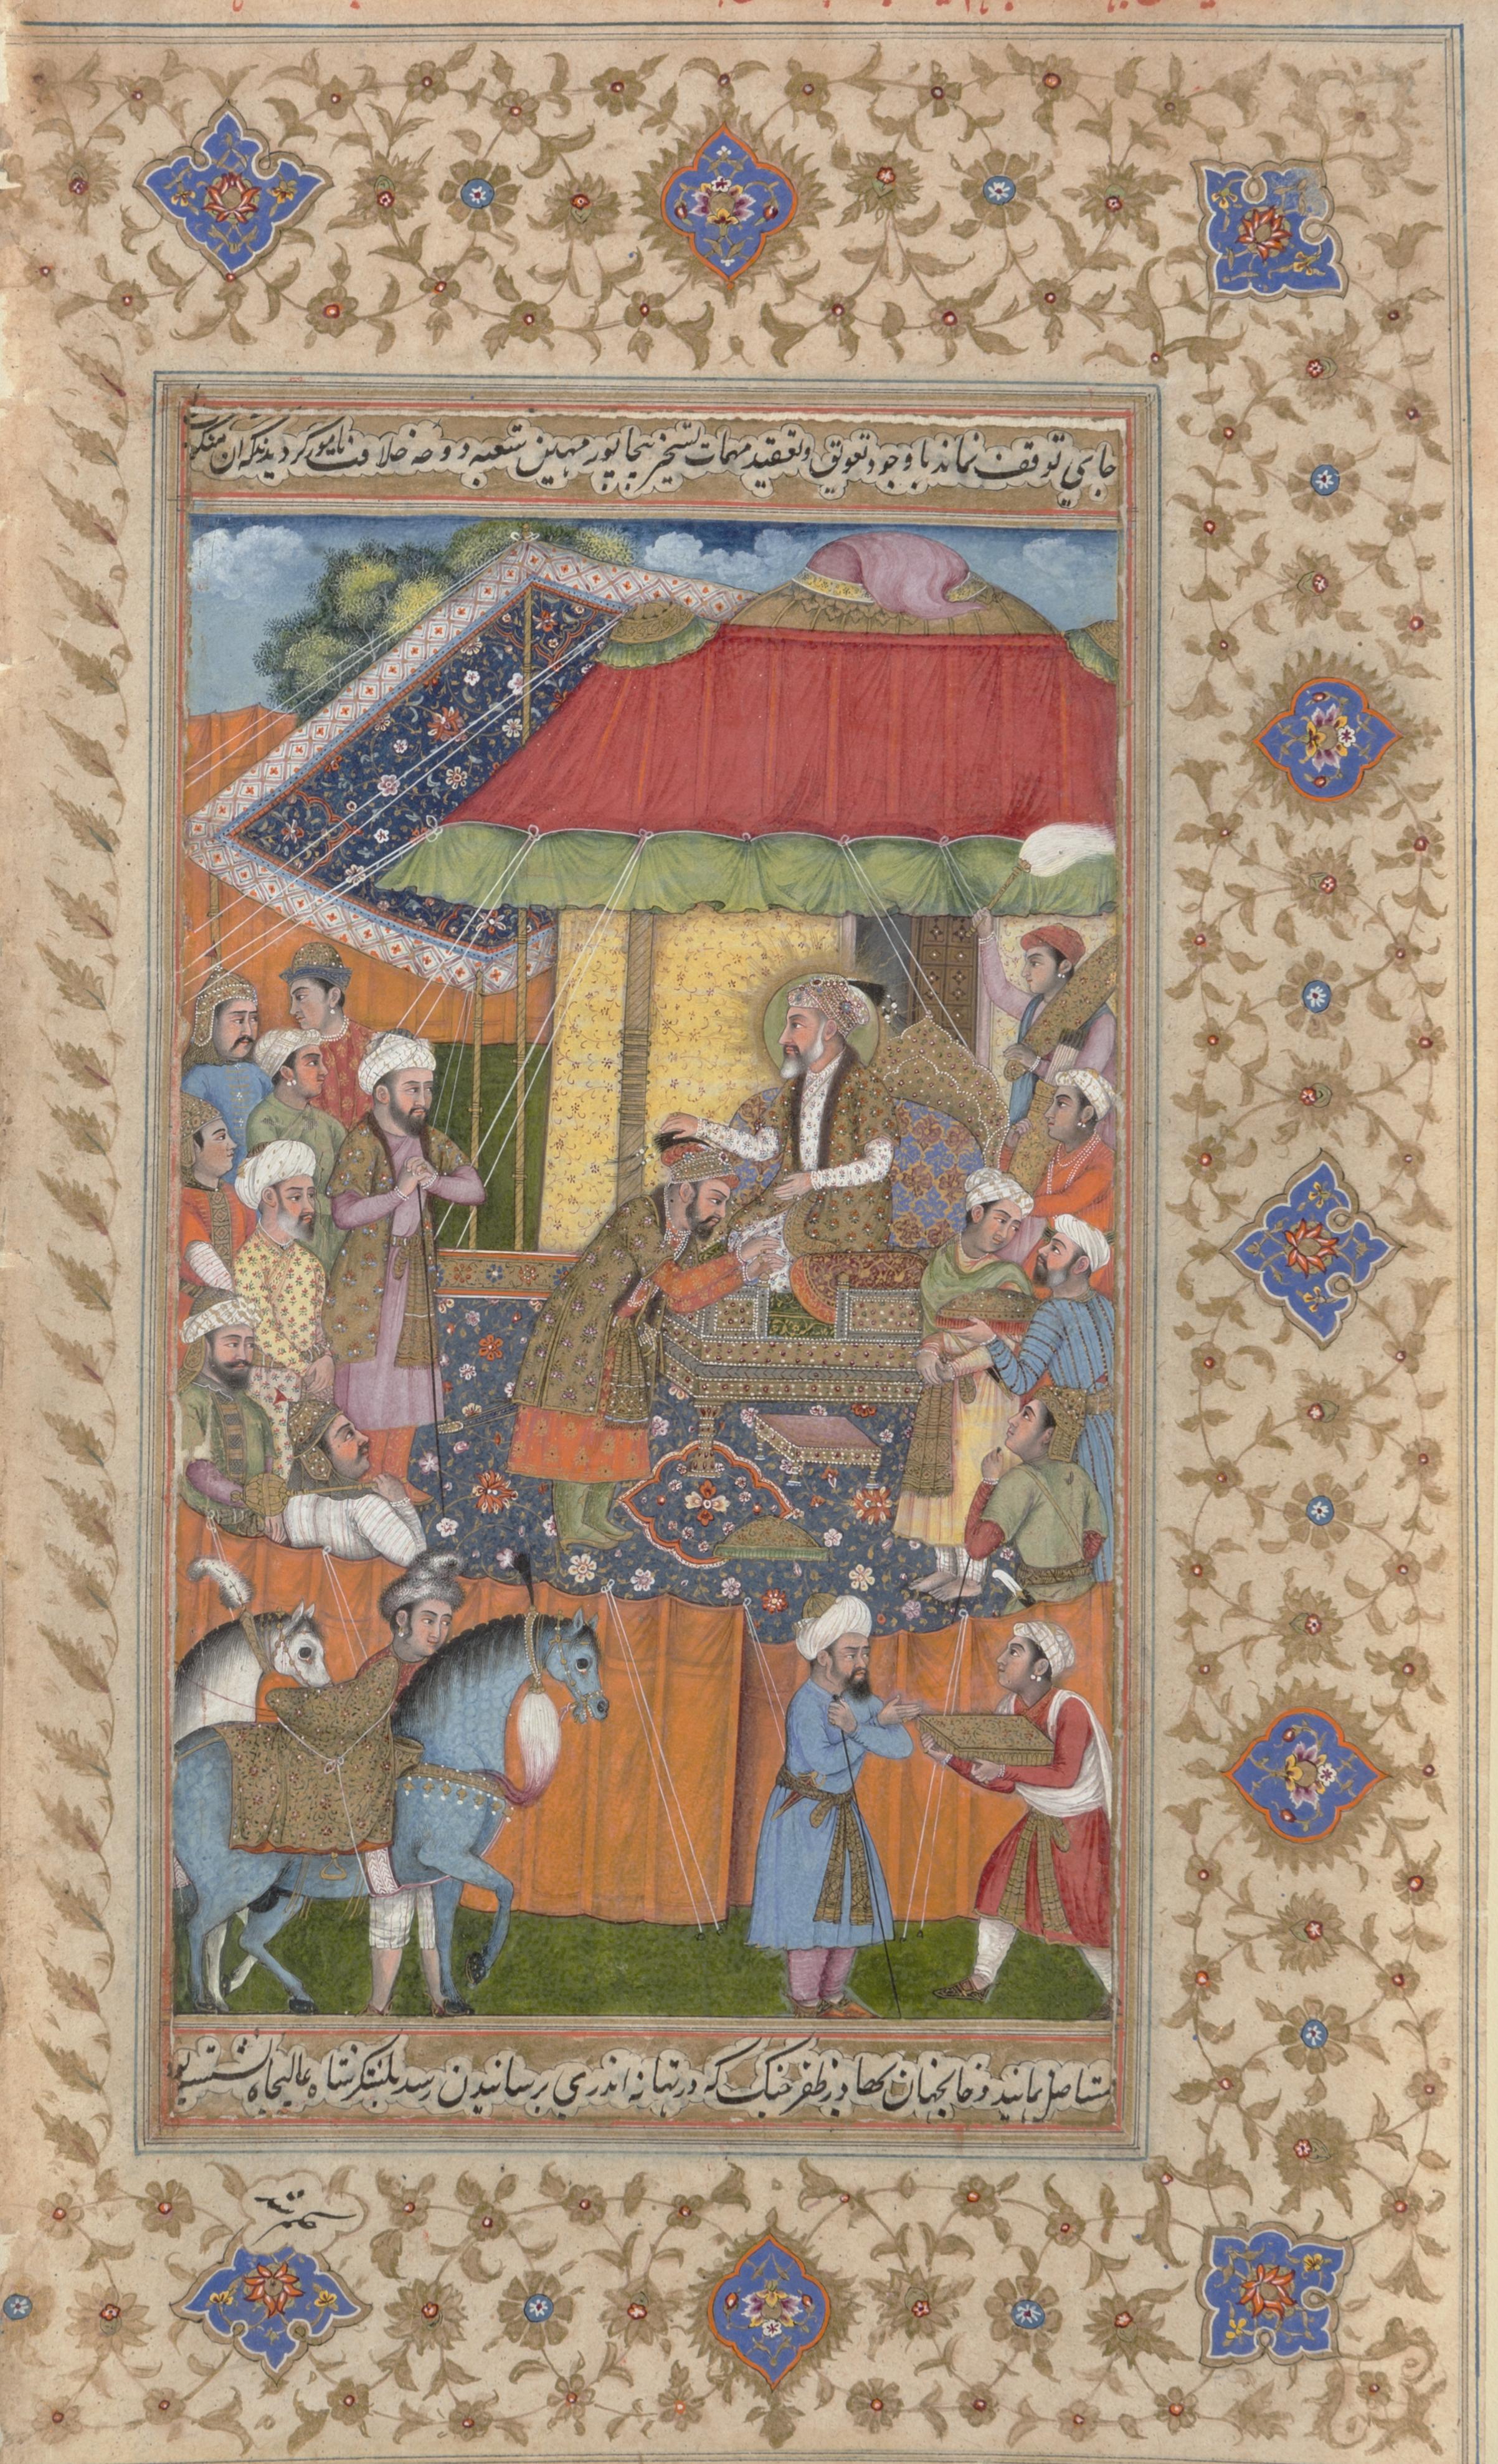 جاي توقف نماند با وجود تعويق و تعقيد مهمات تسخير بيجاپور مهين شعبه دوحه خلافت نامور گرديد كه آن
مستاصل نمايند و خانجهان بهادر ظفر جنگ كه در تهانه اندري برسانيدن رسد بلشكر شاه عاليجاه